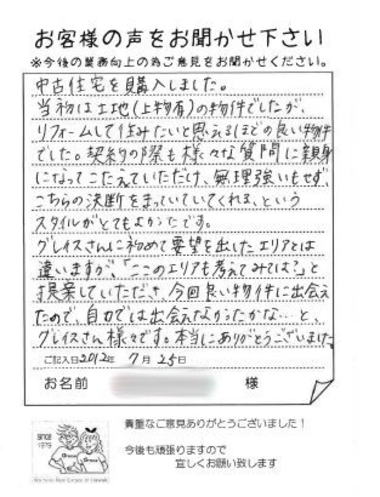 お客様の声をお聞かせ下さい
※今後の業務向上の為ご意見をお聞かせください。
中古住宅を購入しました。
当初は土地(上物有)の物件でしたが、
リフォームして住みたいと思えるほどの良い物件
でした。契約の際も様々な質問に親身
になってこたえていただけ、無理強いもせず、
こちらの決断をまっていてくれる、という
スタイルがとてもよかったです。
グレイスさんに初めて要望を出したエリアとは
違いますが、「ここのエリアも考えてみては?」と
提案していただき、今回良い物件に出会え
たので、自力では出会えなかったかな…と、
グレイスさん様々です。本当にありがとうございました。
ご記入日2012年 7月 25日
お名前 様
貴重なご意見ありがとうございました!
今後も頑張りますので
宜しくお願い致します
since
1979